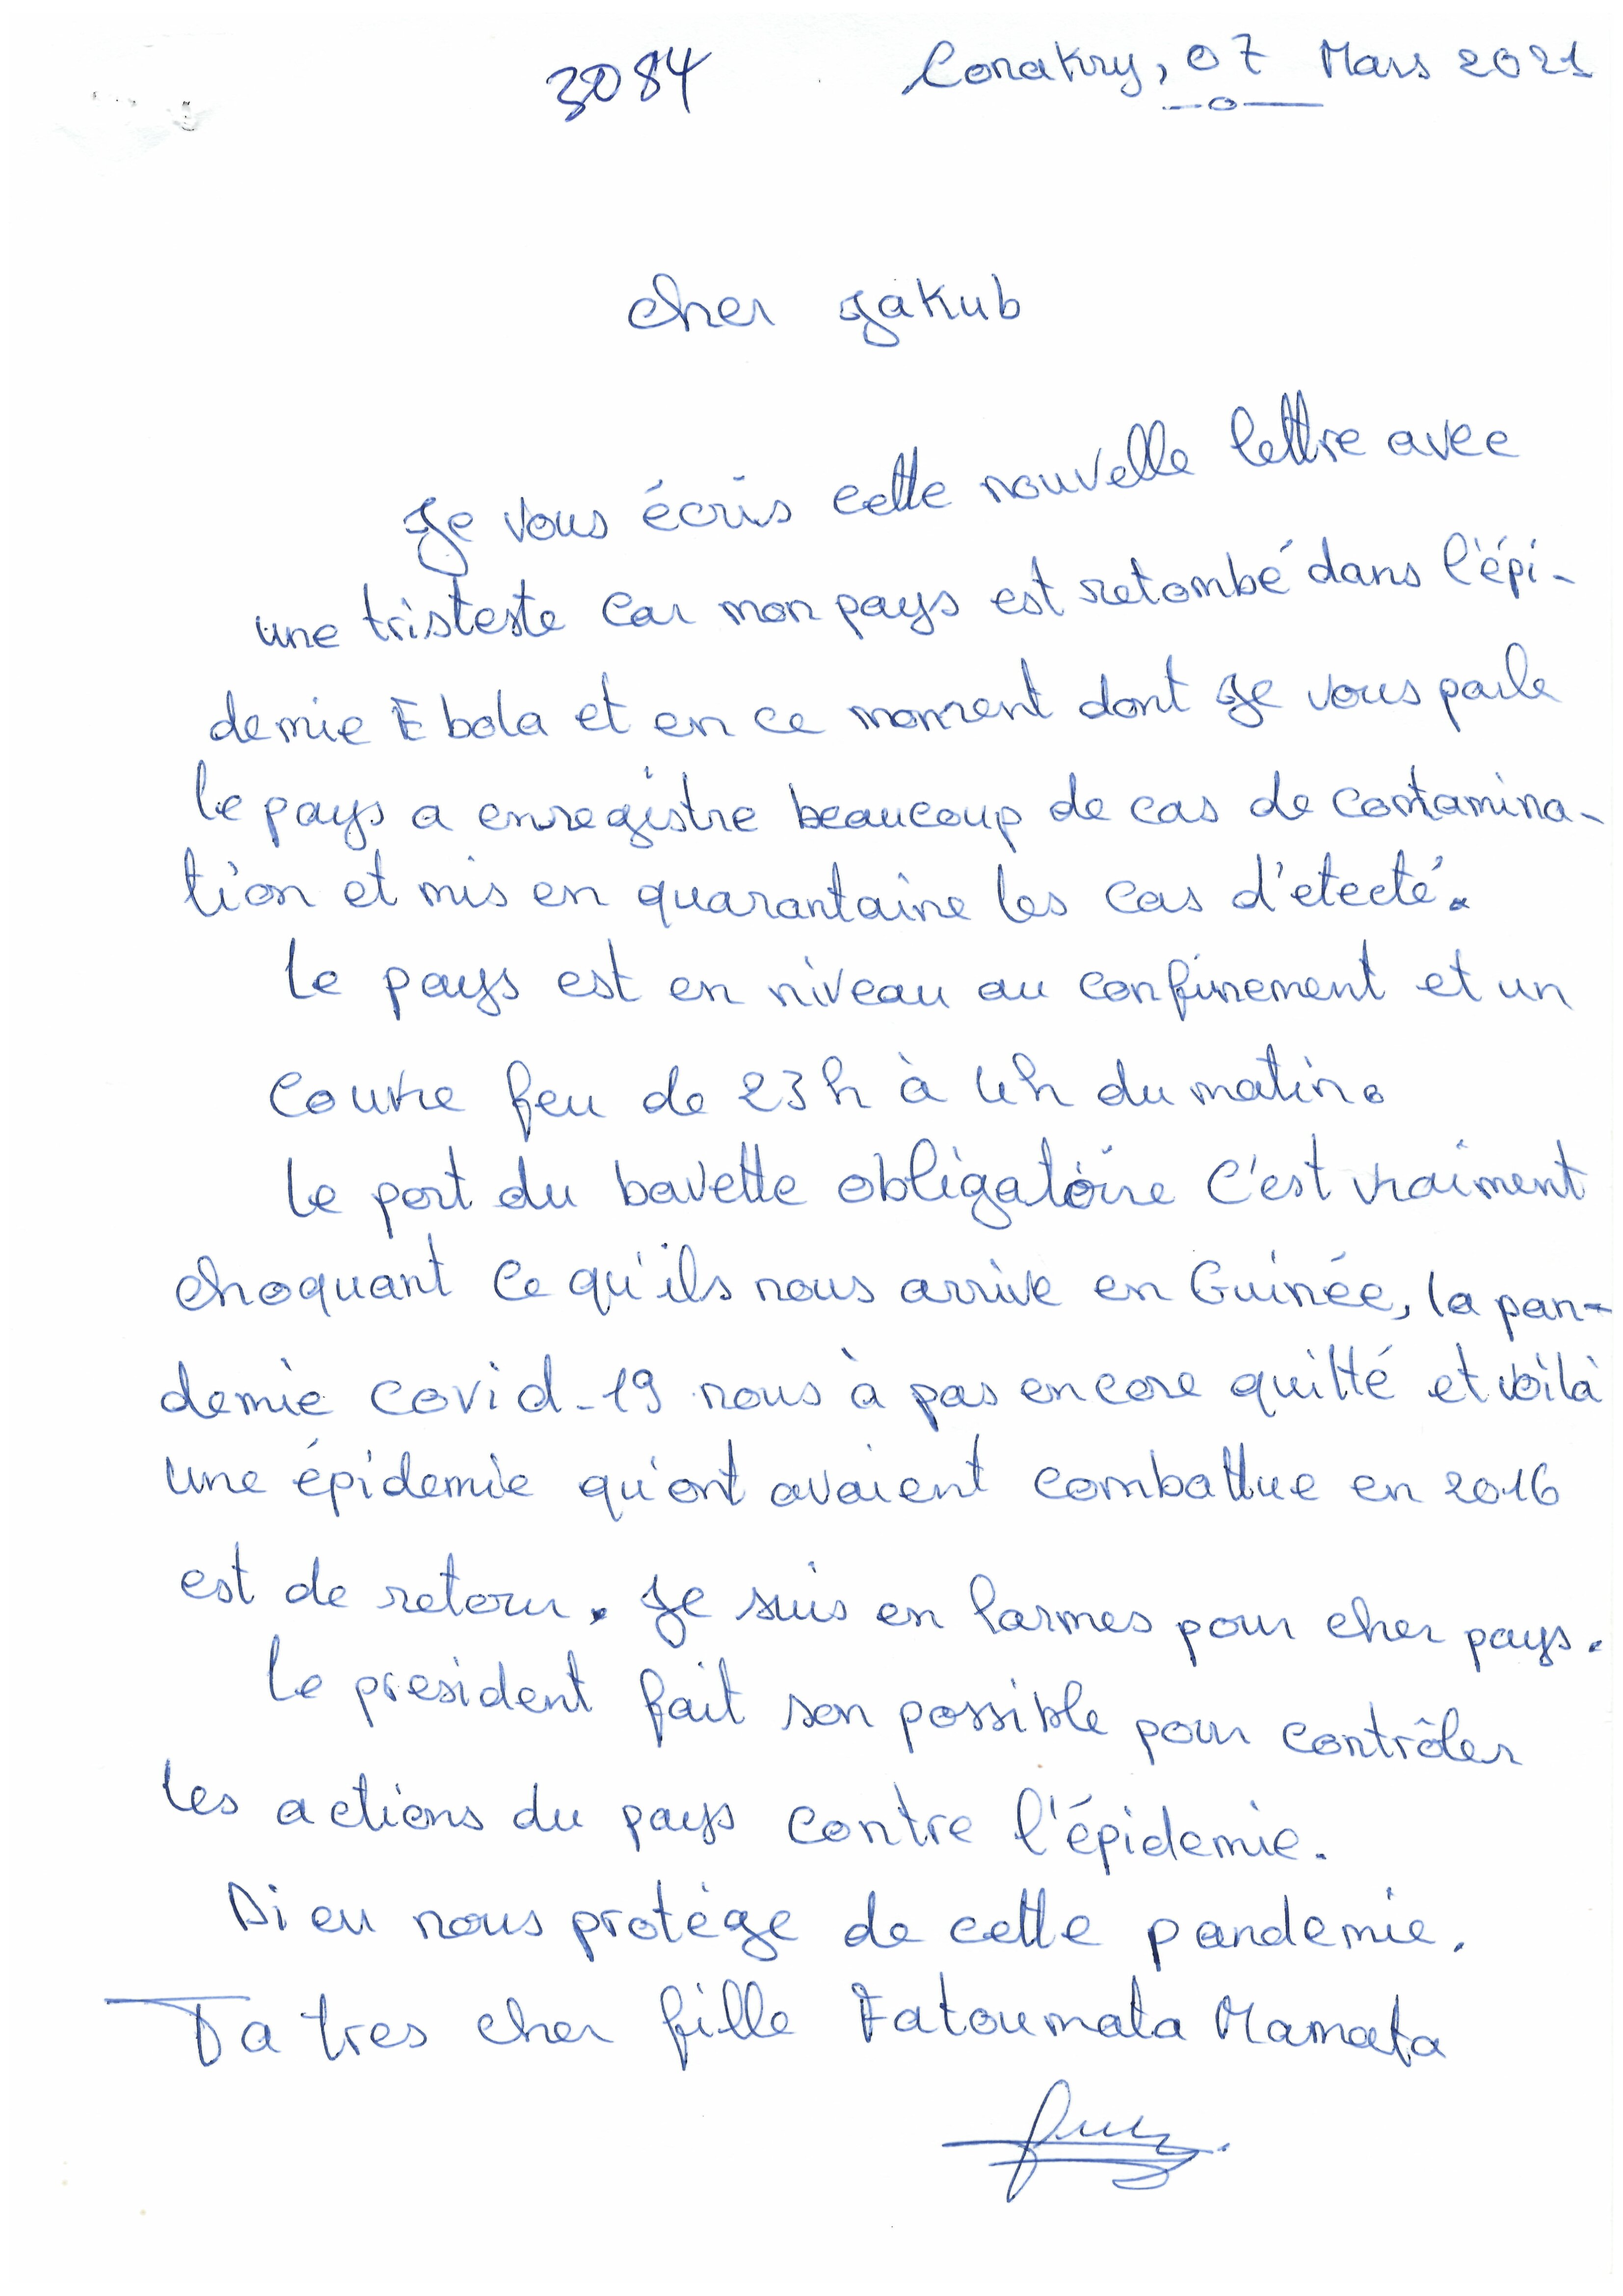 3084 Conakry, 07 Mars 2021
cher Jakub
Je vous écris cette nouvelle lettre avec
une tristeste car mon pays est retombé dans l'épi-
demie Ebola et en ce moment dont Je vous parle
le pays a enregistre beaucoup de cas de contamina-
tion et mis en quarantaine les cas d'etecté.
Le pays est en niveau au confinement et un
Couvre feu de 23h à 4h du matin.
Le port du bavette obligatoire c'est vraiment
choquant ce qu'ils nous arrive en Guinée, la pan-
demie covid-19 nous à pas encore quitté et voilà
une épidemie qu'ont avaient combattue en 2016
est de retour. Je suis en larmes pour cher pays.
Le president fait son possible pour contrôler
les actions du pays contre l'épidemie.
Dieu nous protège de cette pandemie.
Ta tres cher fille Fatoumata Mamata